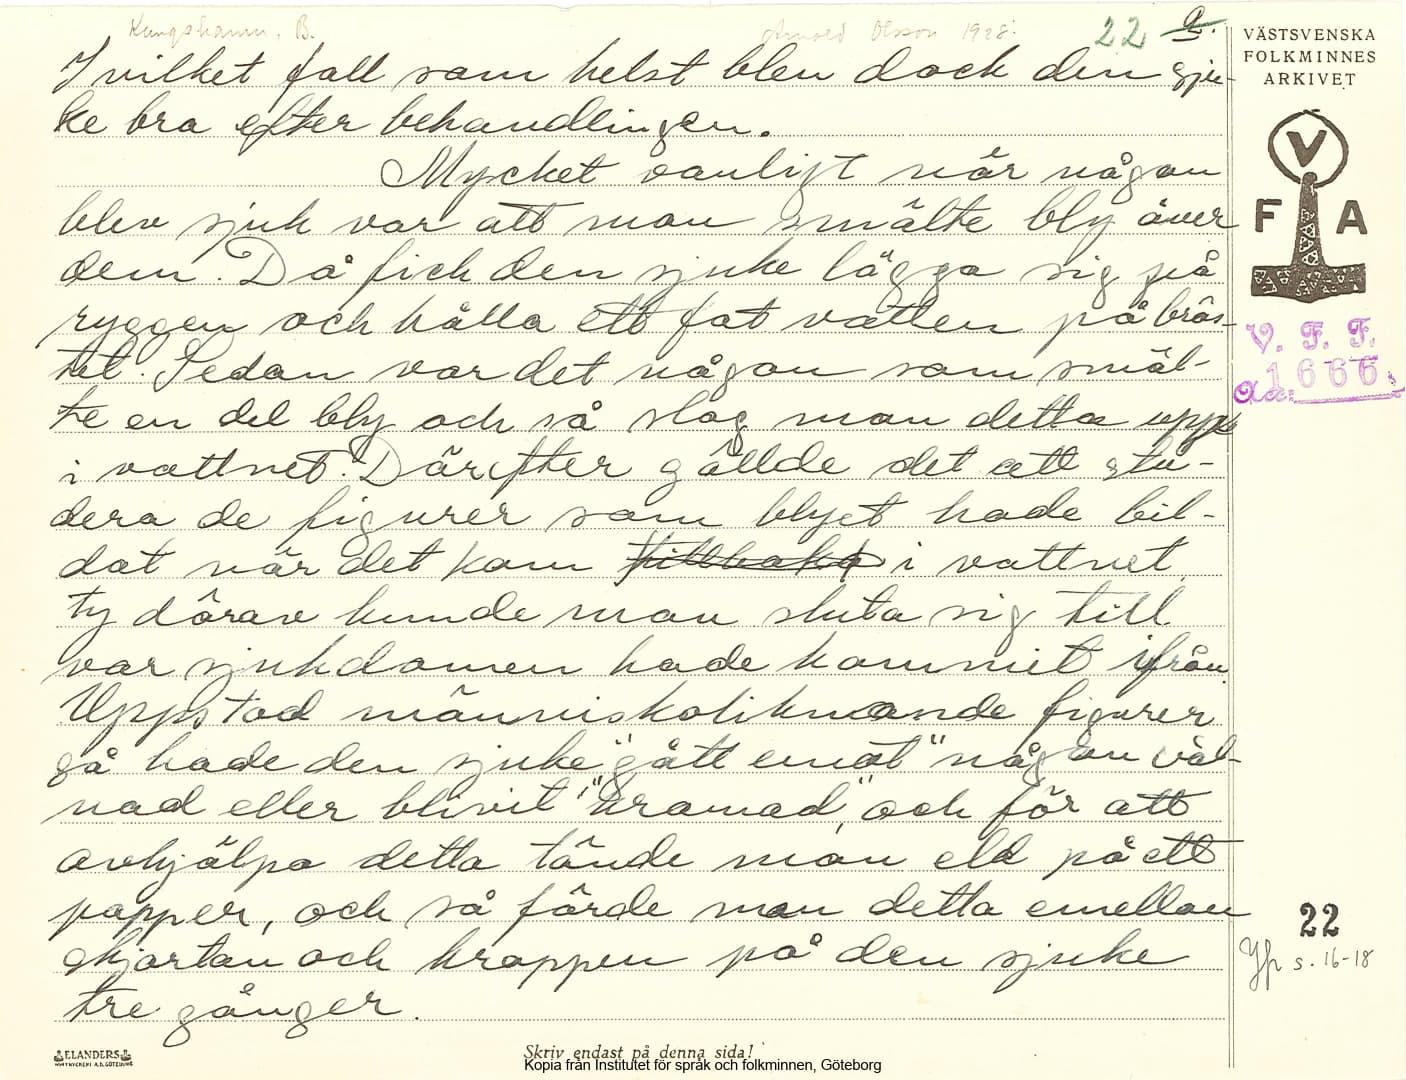 Kungshamn. B.
Arnold Olsson 1928.
22
VÄSTSVENSKA
FOLKMINNES
ARKIVET
V
F A
V. F. F.
Acc: 1666.
I vilket fall som helst blev dock den sju-
ke bra efter behandlingen.
Mycket vanligt når någon
blev sjuk var att man smälte bly över
dem. Då fick den sjuke lägga sig på
ryggen och hålla ett fat vatten på brös-
tet. Sedan var det någon som smäl-
te en del bly och så slog man detta upp
i vattnet. Därefter gällde det att stu-
dera de figurer som blyet hade bil-
dat när det kom tillbaka i vattnet
ty därav kunde man sluta sig till
var sjukdomen hade kommit ifrån.
Uppstod människoliknande figurer
så hade den sjuke "gått emot" någon vål-
nad eller blivit "kramad", och för att
avhjälpa detta tände man eld på ett
papper, och så förde man detta emellan
skjortan och kroppen på den sjuke
tre gånger.
22
Jfr s. 16-18
ELANDERS
Skriv endast på denna sida!
Kopia från Institutet för språk och folkminnen, Göteborg